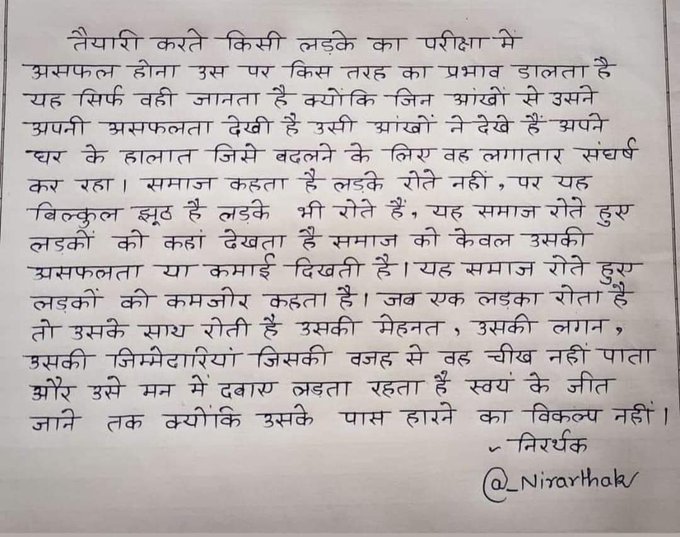 तैयारी करते किसी लड़के का परीक्षा में
असफल होना उस पर किस तरह का प्रभाव डालता है
यह सिर्फ वही जानता है क्योंकि जिन आंखों से उसने
अपनी असफलता देखी है उसी आंखों ने देखे हैं अपने
घर के हालात जिसे बदलने के लिए वह लगातार संघर्ष
कर रहा। समाज कहता है लड़के रोते नहीं, पर यह
बिल्कुल झूठ है लड़के भी रोते हैं, यह समाज रोते हुए
लड़कों को कहां देखता है समाज को केवल उसकी
असफलता या कमाई दिखती है। यह समाज रोते हुए
लड़कों को कमजोर कहता है। जब एक लड़का रोता है
तो उसके साथ रोती है उसकी मेहनत, उसकी लगन,
उसकी जिम्मेदारियां जिसकी वजह से वह चीख नहीं पाता
और उसे मन में दबाए लड़ता रहता है स्वयं के जीत
जाने तक क्योंकि उसके पास हारने का विकल्प नहीं।
~ निरर्थक
@_Nirarthak